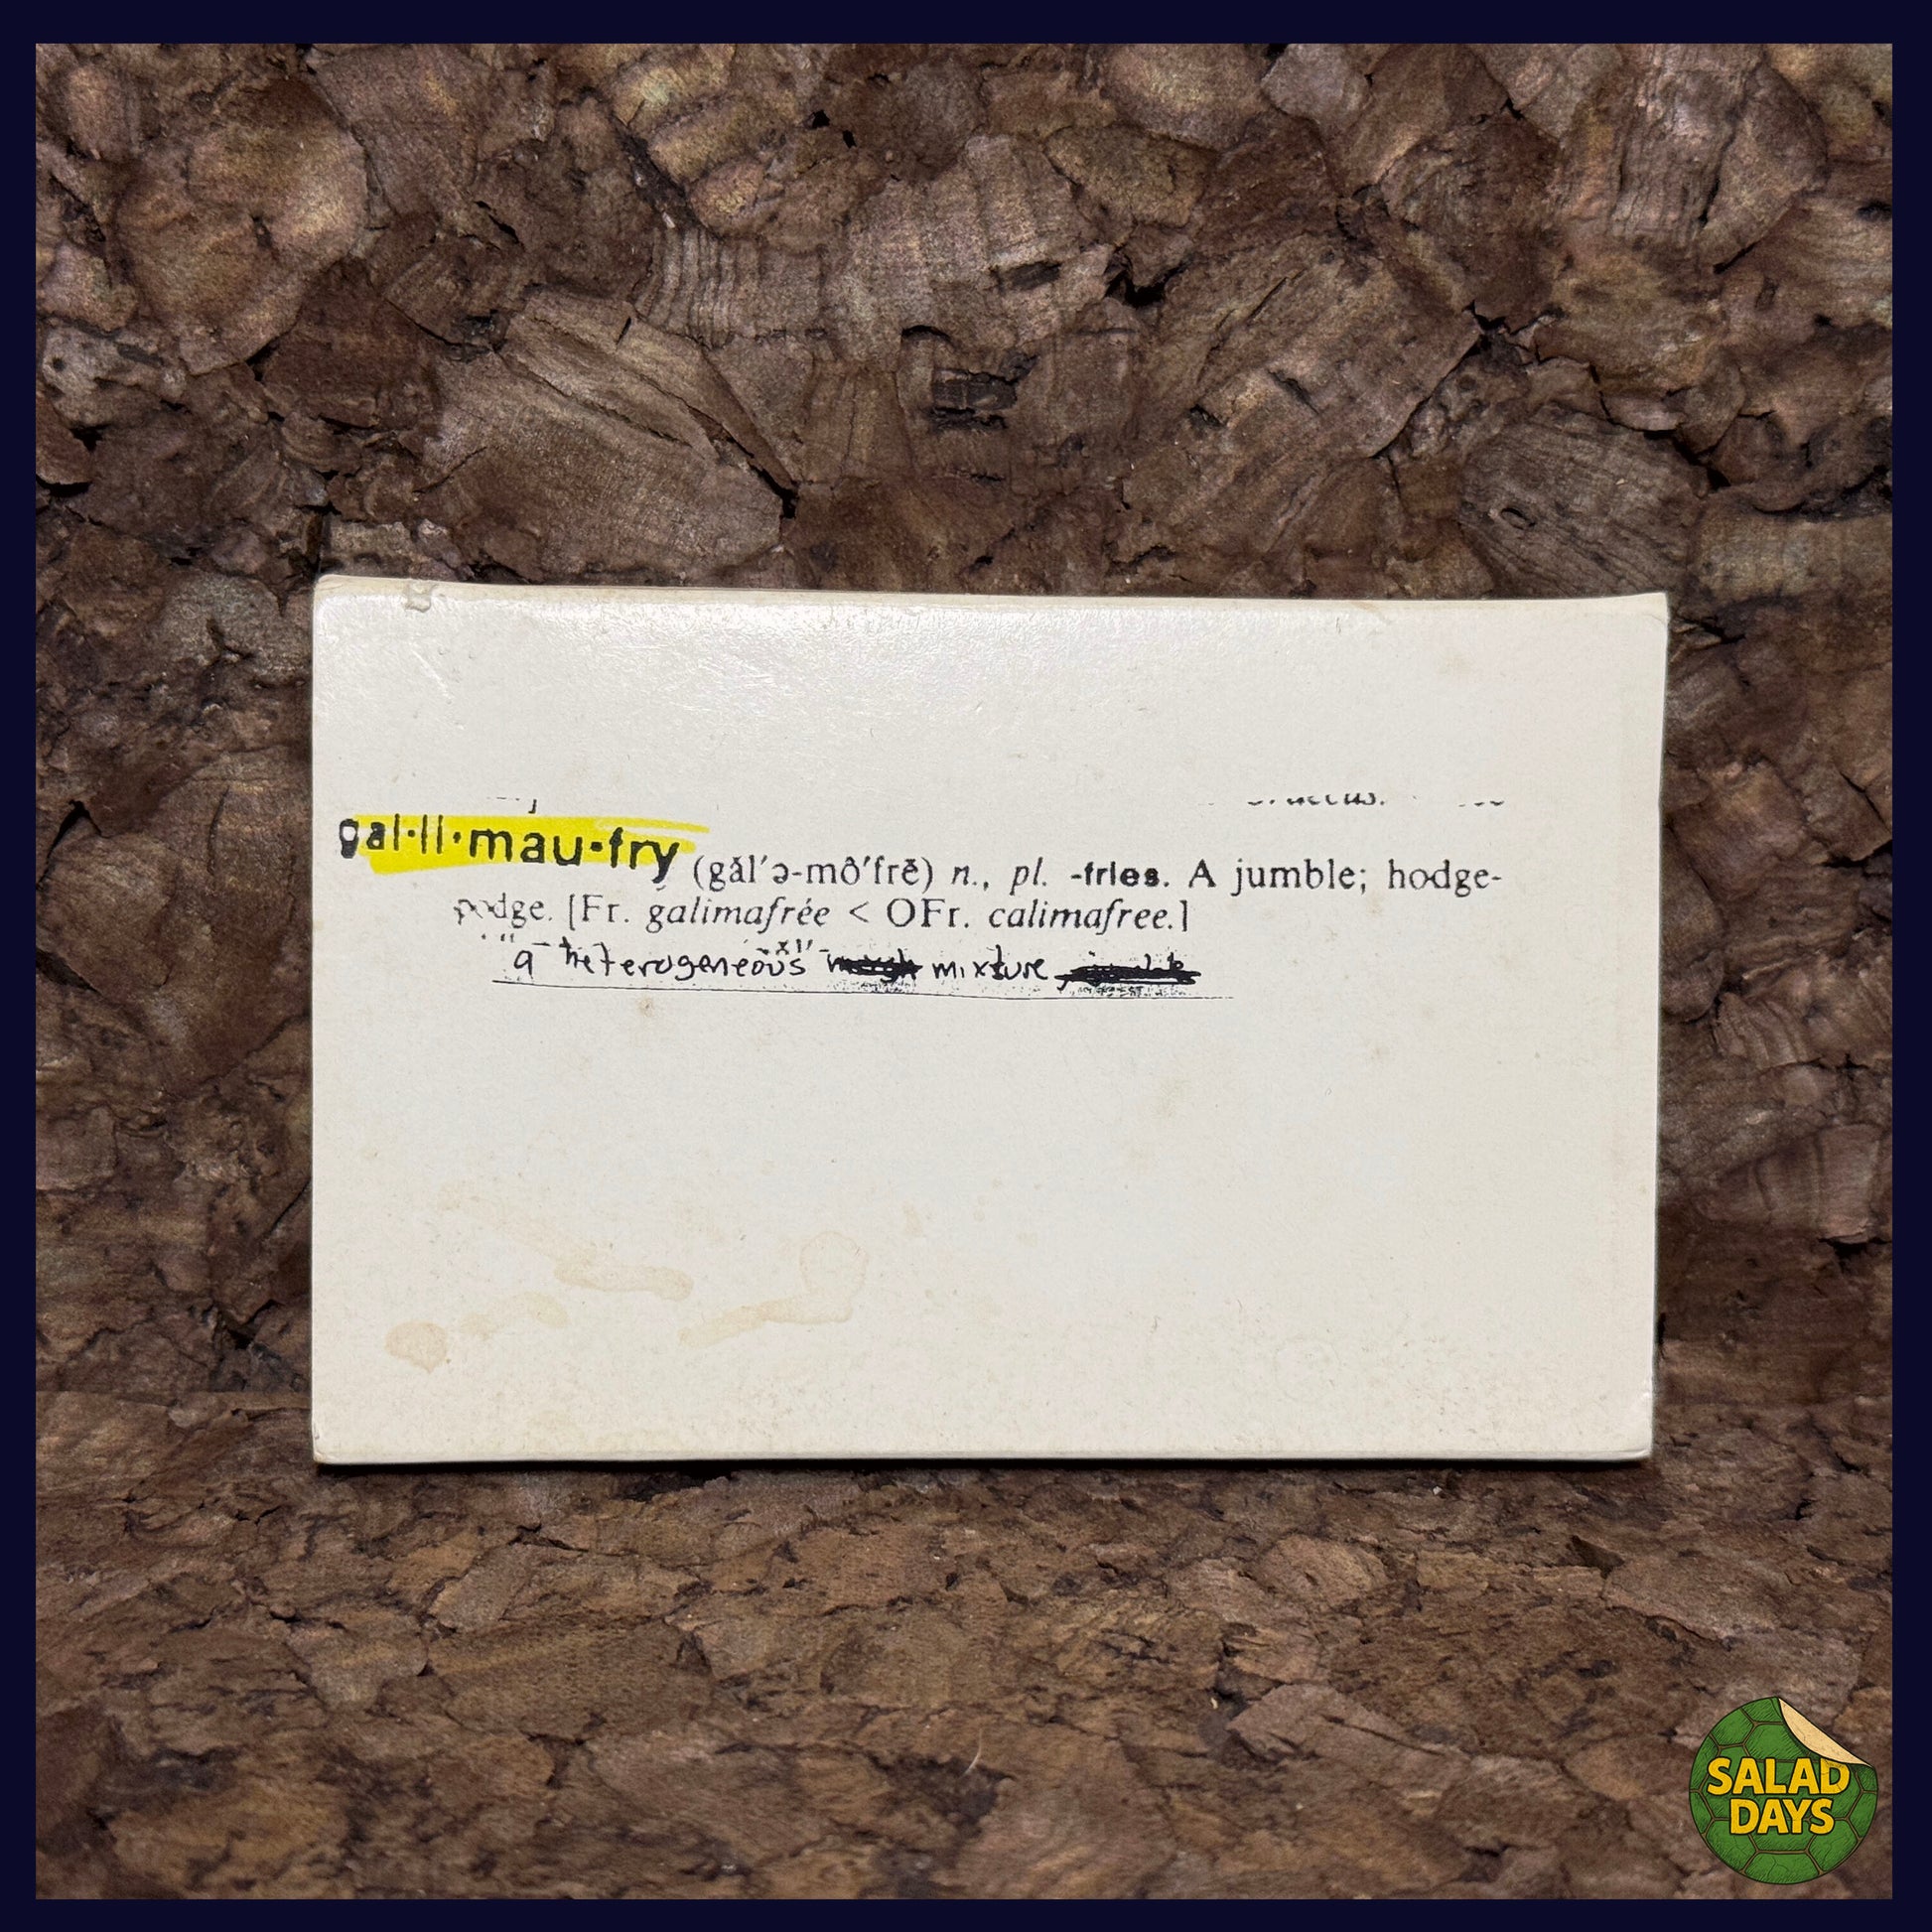 gal·li·mau·fry (găl′ə-mô′frē) n., pl. -fries. A jumble; hodge-
podge. [Fr. galimafrée < OFr. calimafree.]
"a heterogeneous mixture
SALAD
DAYS